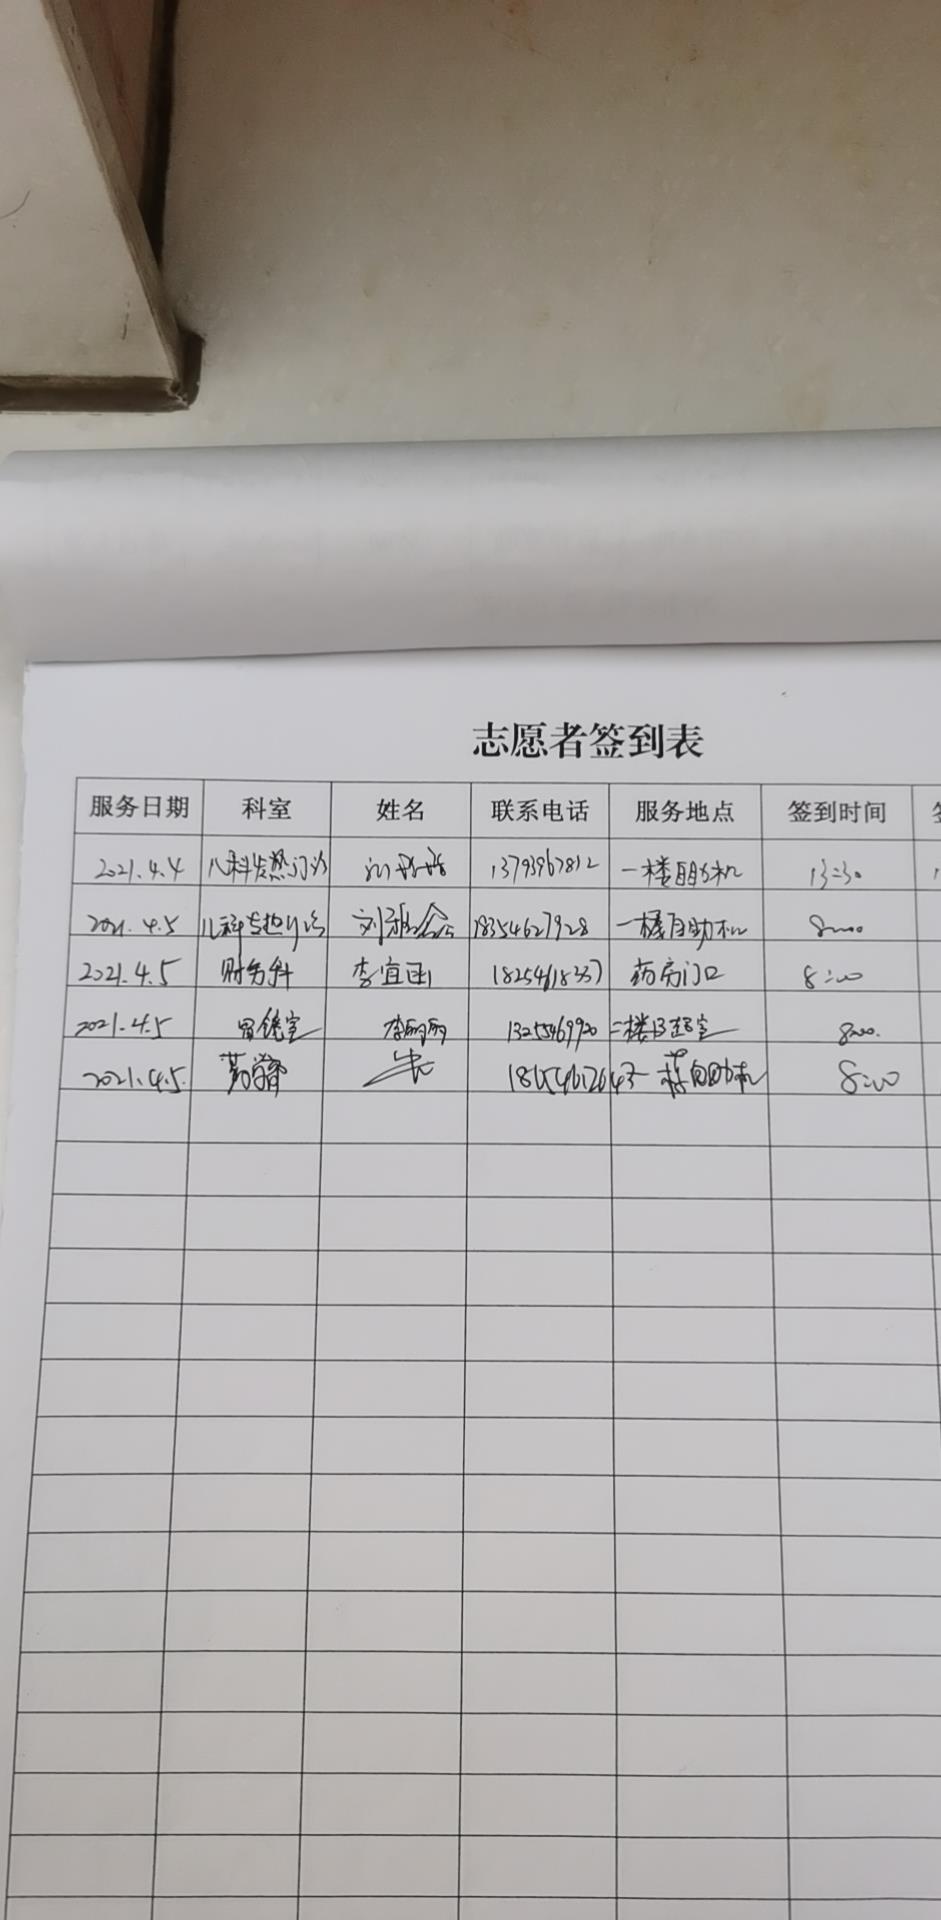 志愿者签到表
服务日期 科室 姓名 联系电话 服务地点 签到时间
2021.4.4 儿科发热门诊 13793967812 一楼自助机 13:30
2021.4.5 儿科发热门诊 刘 18354627928 一楼自助机 8:00
2021.4.5 财务科 李宜 药房门口 8:00
2021.4.5 胃镜室 李丽丽 1325469920 二楼 8:00
2021.4.5 药学部 一楼自助机 8:00